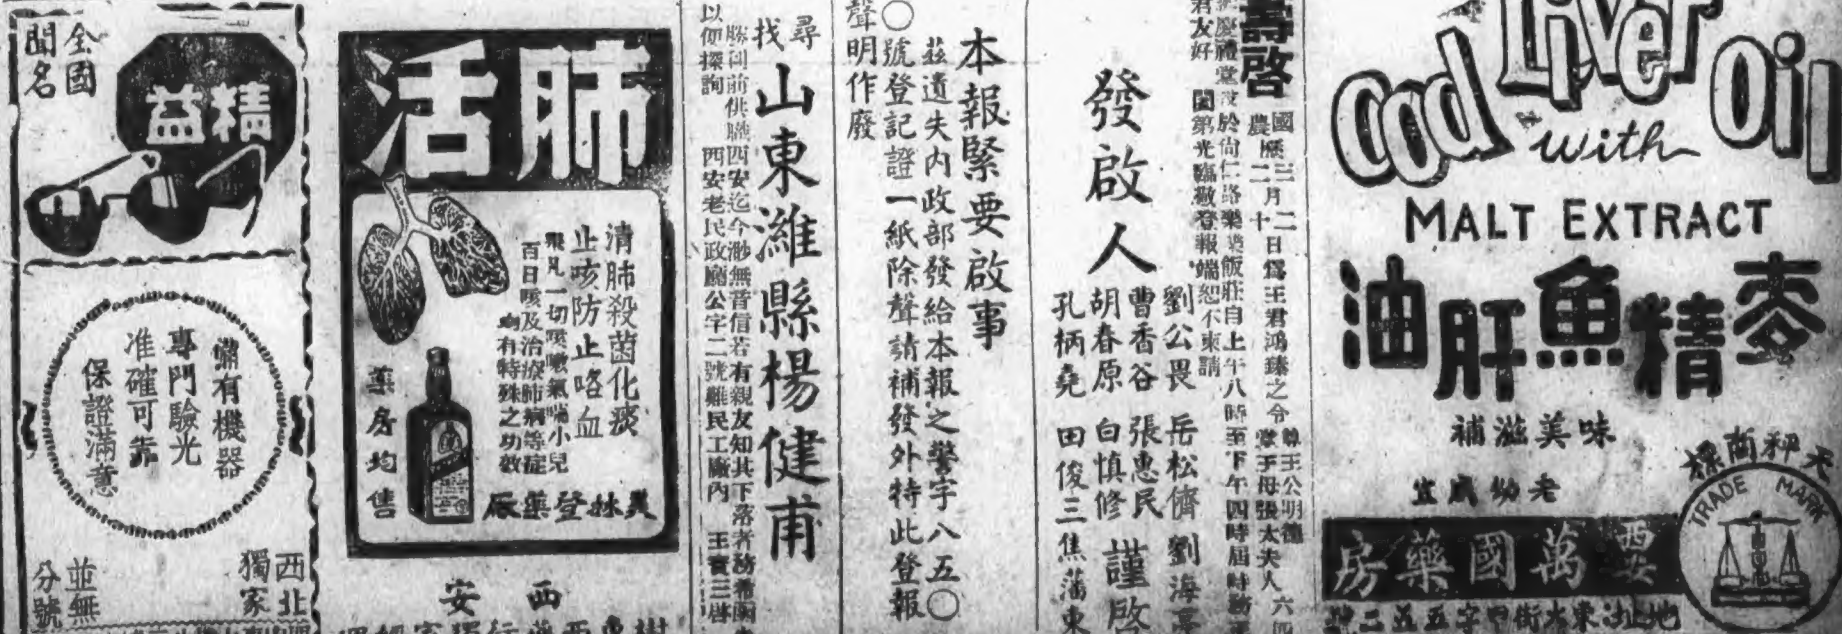 Cod Liver Oil
with
MALT EXTRACT
麥精魚肝油
味美滋補
老幼咸宜
天秤商標
TRADE MARK
萬國藥房
壽啓
國曆三月二日爲王君鴻臻之令
農曆二十
尊王公明德
堂于母張太夫人六
於尚仁路樂
飯莊自上午八時至下午四時屆時務
君友好 閤第光臨敬登報端恕不柬請
發啟人
劉公畏 岳松儕 劉海
曹香谷 張惠民
胡春原 白慎修
孔柄堯 田俊三 焦藩東
謹啟
本報緊要啟事
茲遺失內政部發給本報之警字八五〇
〇號登記證一紙除聲請補發外特此登報
聲明作廢
尋找
山東濰縣楊健甫
勝利前供職西安迄今渺無音信若有親友知其下落者務希函
以便探詢 西安老民政廳公字二號難民工廠內 王寶三啓
肺活
清肺殺菌化痰
止咳防止咯血
飛凡一切咳嗽氣喘小兒
百日咳及治療肺病等症
均有特殊之功效
藥房均售
美林登藥廠
西安
全國聞名
精益
備有機器
專門驗光
准確可靠
保證滿意
西北獨家
並無分號